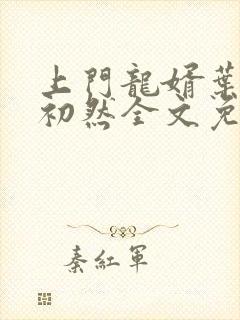 上門龍婿葉
初然全文免
秦紅軍